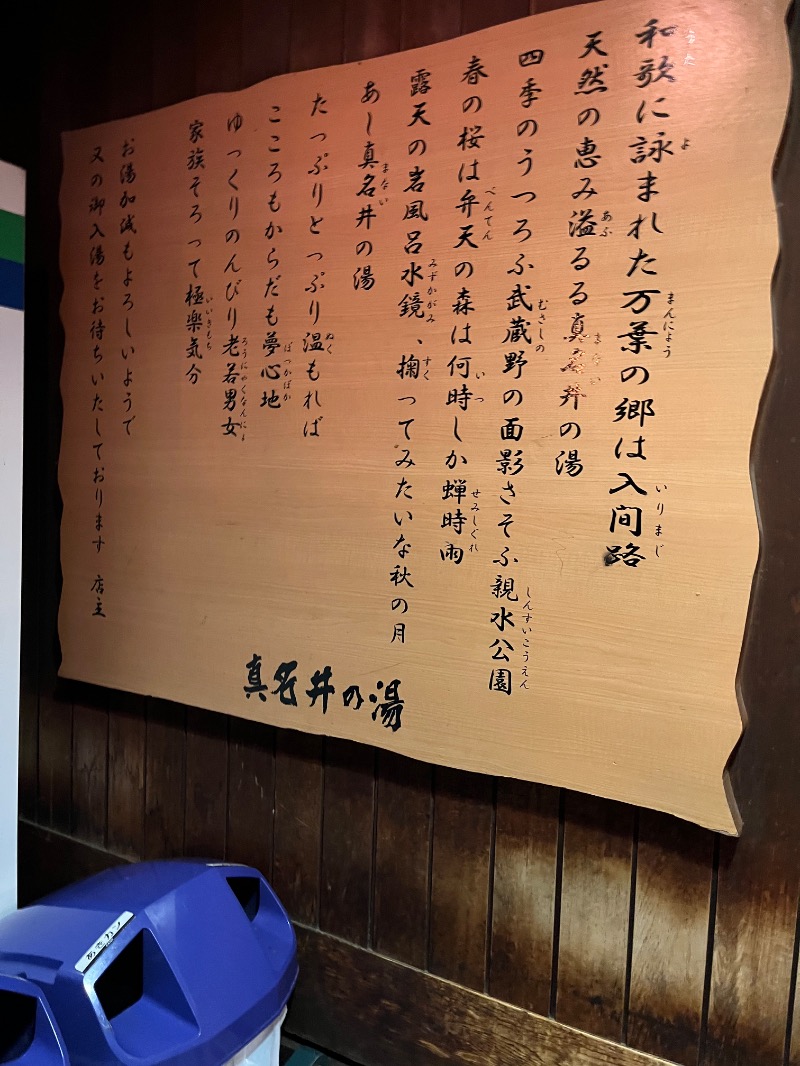 和歌に詠まれた万葉の郷は入間路
天然の恵み溢るる真名井の湯
四季のうつろふ武蔵野の面影さそふ親水公園
春の桜は弁天の森は何時しか蝉時雨
露天の岩風呂水鏡、掬ってみたいな秋の月
あし真名井の湯
たっぷりとっぷり温もれば
こころもからだも夢心地
ゆっくりのんびり老若男女
家族そろって極楽気分
お湯加減もよろしいようで
又の御入湯をお待ちいたしております 店主
真名井の湯
あきカン